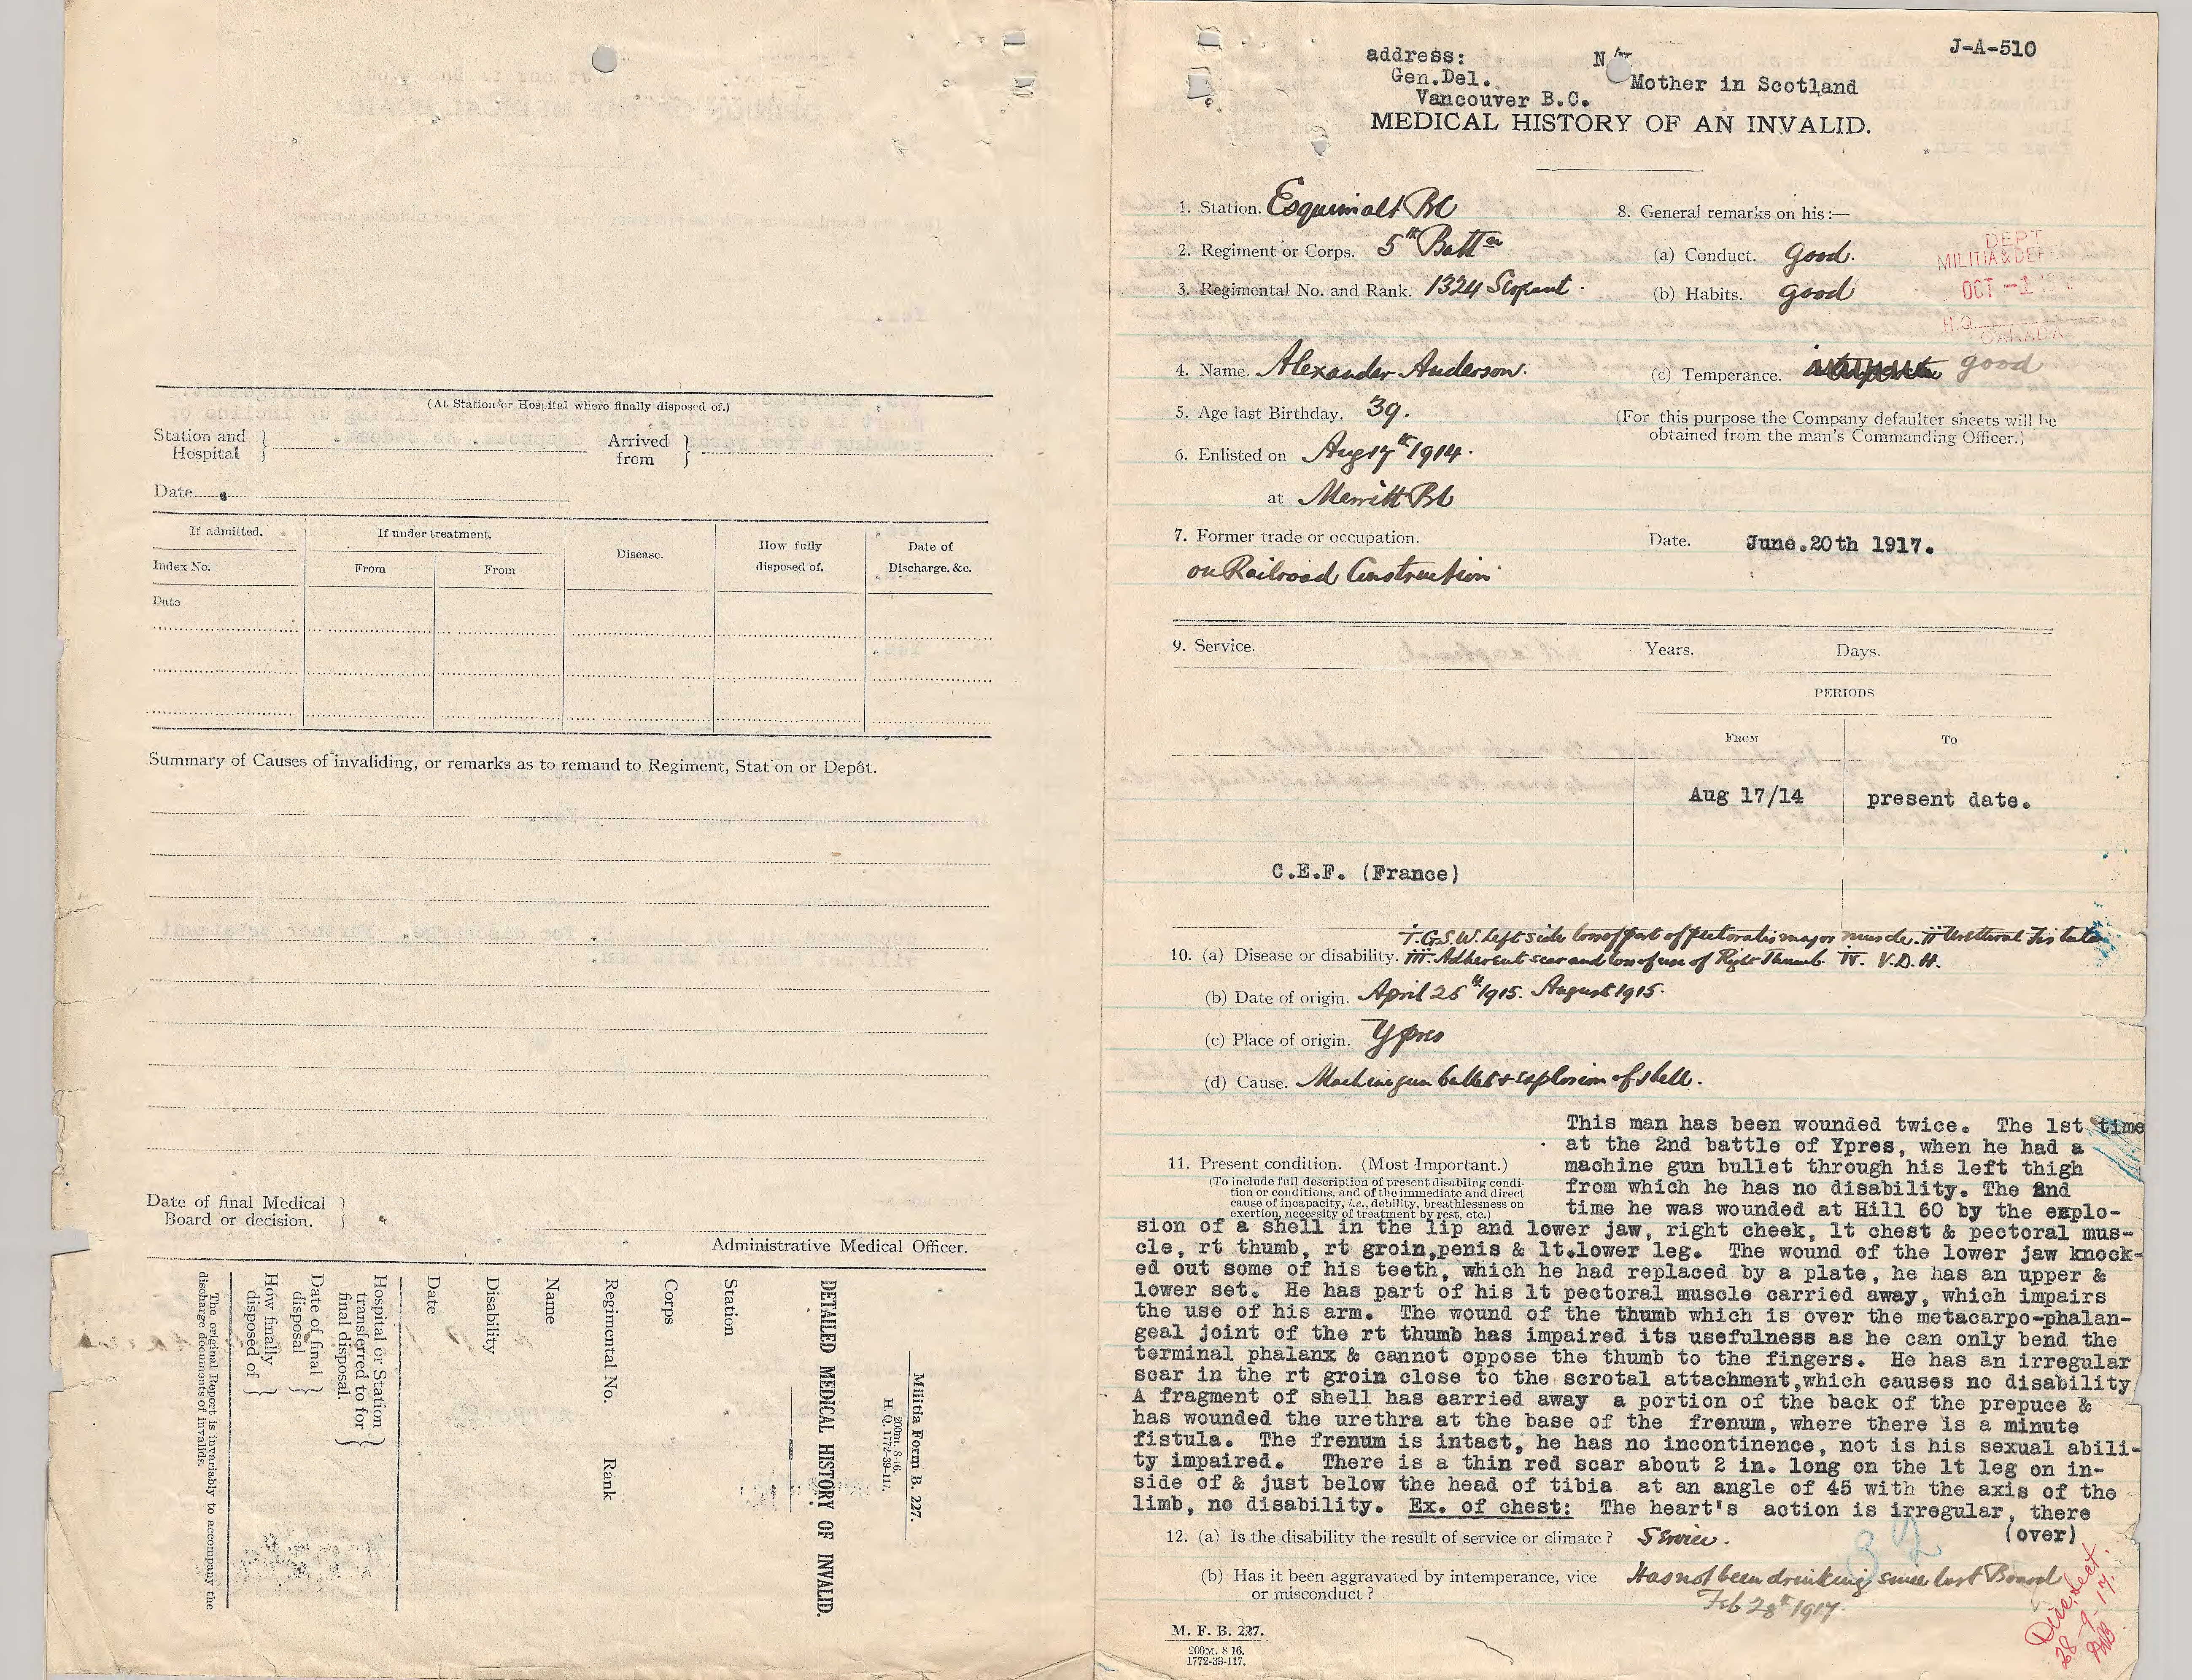 (At Station or Hospital where finally disposed of.)
Station and Hospital } Arrived from }
Date
If admitted. If under treatment. Disease. How fully disposed of. Date of Discharge, &c.
Index No. From From
Date
Summary of Causes of invaliding, or remarks as to remand to Regiment, Stat on or Depôt.
Date of final Medical Board or decision. }
Administrative Medical Officer.
Militia Form B. 227.
200m. 8-16.
H. Q. 1772-39-117.
DETAILED MEDICAL HISTORY OF INVALID.
Station
Corps
Regimental No. Rank
Name
Disability
Date
Hospital or Station transferred to for final disposal. }
Date of final disposal }
How finally disposed of }
The original Report is invariably to accompany the
discharge documents of invalids.
J-A-510
address:
Gen.Del. Mother in Scotland
Vancouver B.C.
MEDICAL HISTORY OF AN INVALID.
1. Station. Esquimalt BC
2. Regiment or Corps. 5th Battn
3. Regimental No. and Rank. 1324 Sergeant.
4. Name. Alexander Anderson.
5. Age last Birthday. 39.
6. Enlisted on Aug 17th 1914.
at Merritt BC
7. Former trade or occupation.
on Railroad Construction
8. General remarks on his :—
(a) Conduct. Good.
(b) Habits. Good
(c) Temperance. good
(For this purpose the Company defaulter sheets will be
obtained from the man's Commanding Officer.)
Date. June.20th 1917.
DEPT
MILITIA & DEF
OCT -1
H.Q.
CANADA
9. Service. Years. Days.
PERIODS
FROM TO
Aug 17/14 present date.
C.E.F. (France)
i. G.S.W. Left side loss of part of pectoralis major muscle. ii Urethral Fistula
10. (a) Disease or disability. iii. Adherent scar and loss of use of Right Thumb. IV. V.D.H.
(b) Date of origin. April 25th 1915. August 1915.
(c) Place of origin. Ypres
(d) Cause. Machine gun bullet & explosion of shell.
11. Present condition. (Most Important.)
(To include full description of present disabling condi-
tion or conditions, and of the immediate and direct
cause of incapacity, i.e., debility, breathlessness on
exertion, necessity of treatment by rest, etc.)
This man has been wounded twice. The 1st time
at the 2nd battle of Ypres, when he had a
machine gun bullet through his left thigh
from which he has no disability. The 2nd
time he was wounded at Hill 60 by the explo-
sion of a shell in the lip and lower jaw, right cheek, lt chest & pectoral mus-
cle, rt thumb, rt groin,penis & lt.lower leg. The wound of the lower jaw knock-
ed out some of his teeth, which he had replaced by a plate, he has an upper &
lower set. He has part of his lt pectoral muscle carried away, which impairs
the use of his arm. The wound of the thumb which is over the metacarpo-phalan-
geal joint of the rt thumb has impaired its usefulness as he can only bend the
terminal phalanx & cannot oppose the thumb to the fingers. He has an irregular
scar in the rt groin close to the scrotal attachment,which causes no disability
A fragment of shell has carried away a portion of the back of the prepuce &
has wounded the urethra at the base of the frenum, where there is a minute
fistula. The frenum is intact, he has no incontinence, not is his sexual abili-
ty impaired. There is a thin red scar about 2 in. long on the lt leg on in-
side of & just below the head of tibia at an angle of 45 with the axis of the
limb, no disability. Ex. of chest: The heart's action is irregular, there
(over)
12. (a) Is the disability the result of service or climate ? Service.
(b) Has it been aggravated by intemperance, vice
or misconduct ?
Has not been drinking since last Board
Feb 28th 1917.
32
28-9-17.
M. F. B. 227.
200M. 8 16.
1772-39-117.